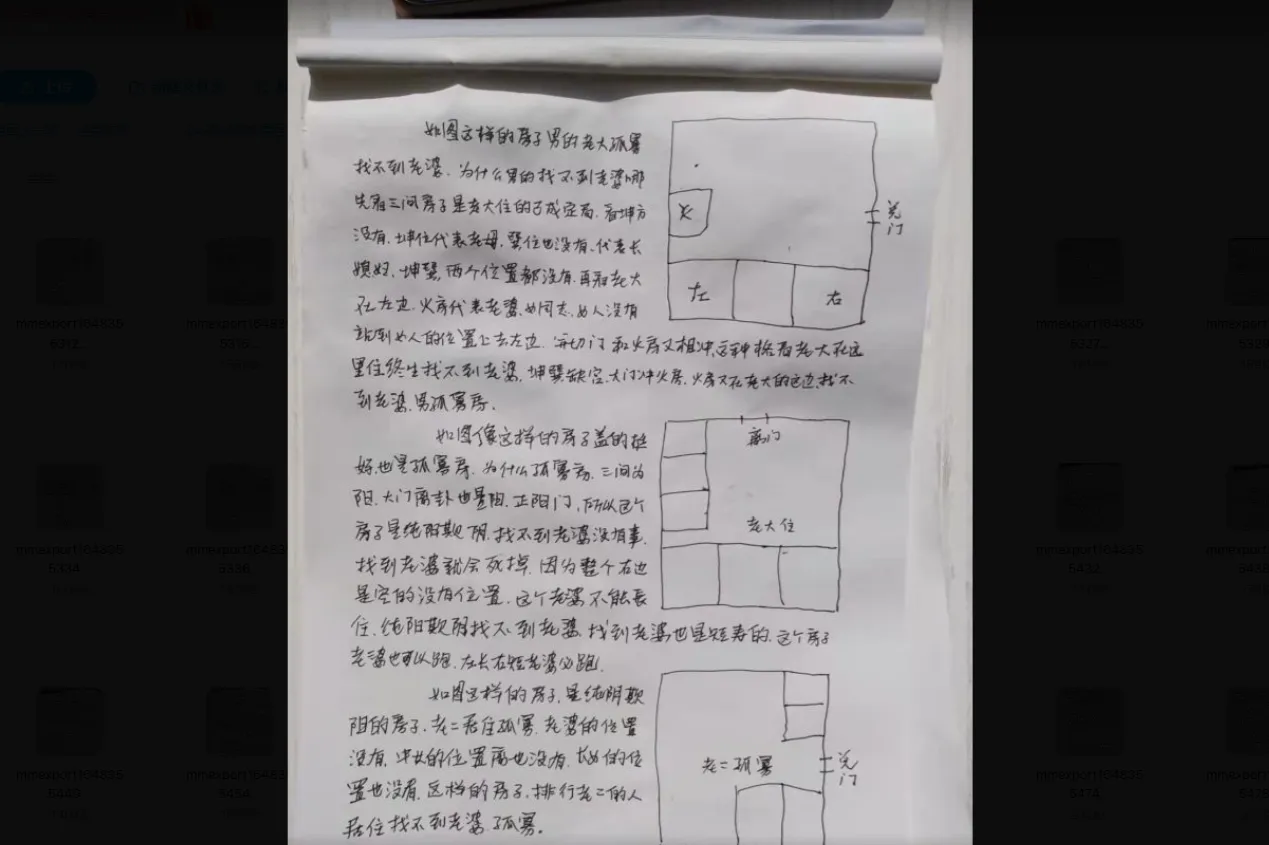 如图这样的房子男的老大孤寡
找不到老婆. 为什么男的找不到老婆哪
先看三间房子是老大住的已成定局. 看坤方
没有. 坤位代表老母. 巽位也没有. 代表长
媳妇. 坤巽. 两个位置都没有. 再看老大
在左边. 火房代表老婆. 女同志. 女人没有
站到女人的位置上去左边. 门和火房又相冲. 这种格局老大在这
里住终生找不到老婆. 坤巽缺宫. 大门冲火房. 火房又在老大的这边. 找不
到老婆. 男孤寡房.
火
兑
门
左
右
如图像这样的房子盖的挺
好. 也是孤寡房. 为什么孤寡房. 三间为
阳. 大门离卦也是阳. 正阳门. 所以这个
房子是纯阳欺阴. 找不到老婆没有事.
找到老婆就会死掉. 因为整个右边
是空的没有位置. 这个老婆不能长
住. 纯阳欺阴找不到老婆. 找到老婆也是短寿的. 这个房子
老婆也可以跑. 左长右短老婆必跑.
离门
老大住
如图这样的房子. 是纯阴欺
阳的房子. 老二居住孤寡. 老婆的位置
没有. 中女的位置离也没有. 长女的位
置也没有. 这样的房子. 排行老二的人
居住找不到老婆. 孤寡.
老二孤寡
兑
门
mmexport164835
mmexport164835
mmexport164835
mmexport164835
mmexport164835
mmexport164835
mmexport164835
mmexport164835
mmexport164835